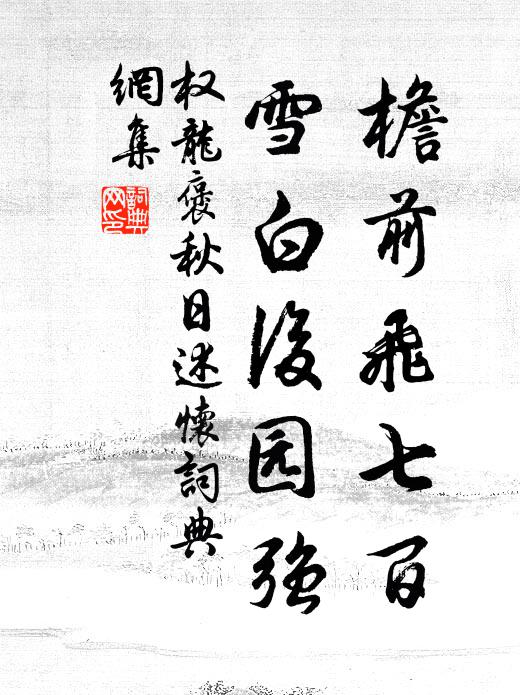 檐前飛七百
雪白後园強
权龍褒秋日述懷詞典
網集
詞典
网印